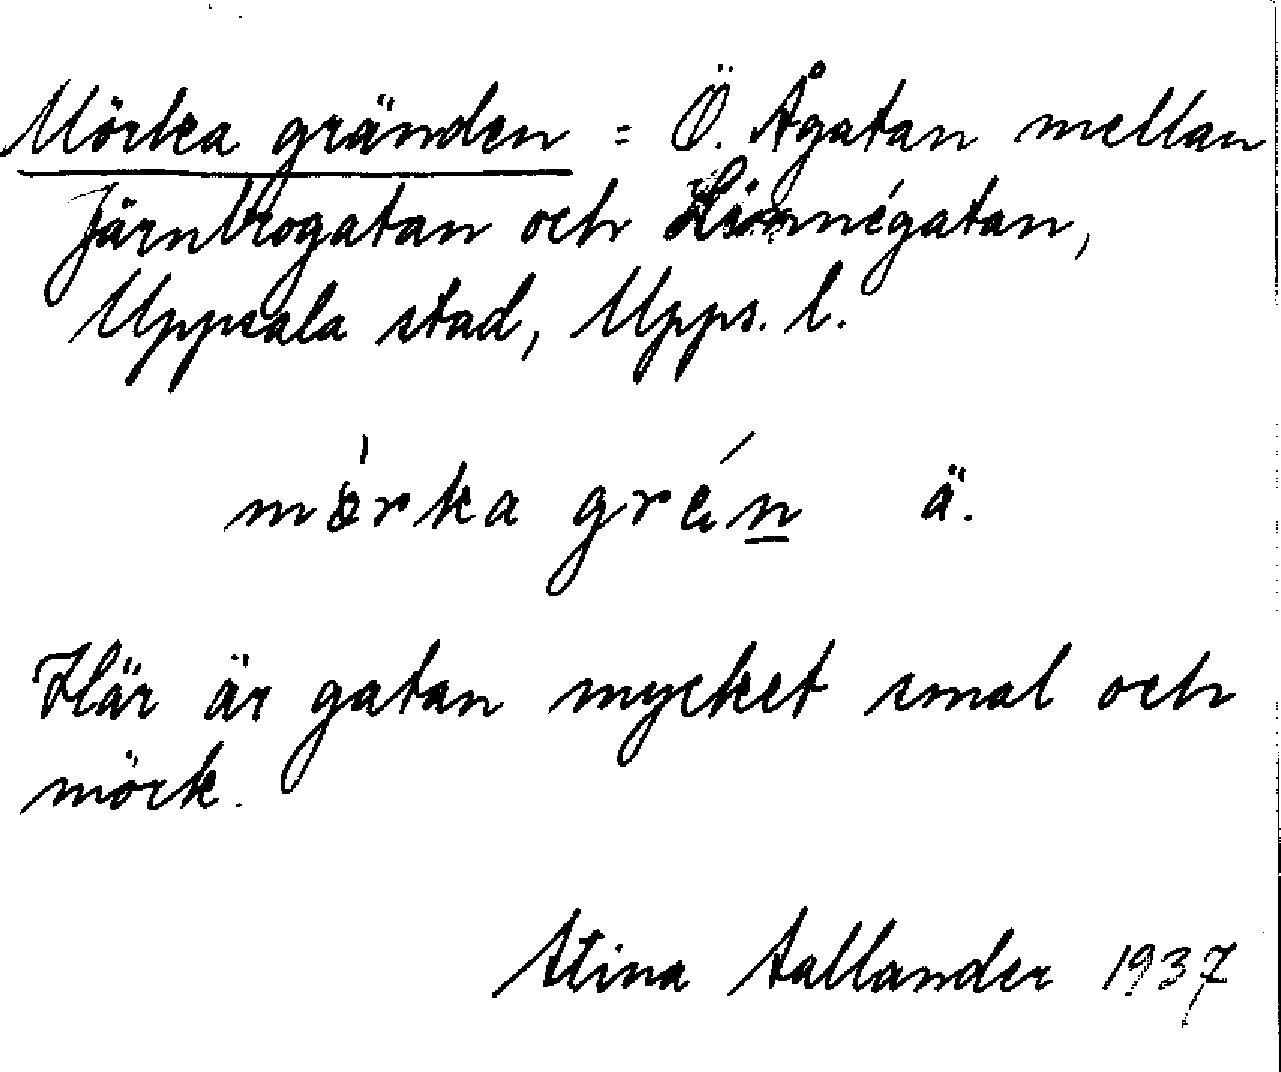 Mörka gränden = Ö. Ågatan mellan
Järnbrogatan och Linnégatan,
Uppsala stad, Upps. l.
mö̀rka grén ä.
Här är gatan mycket smal och
mörk.
Stina Sallander 1937